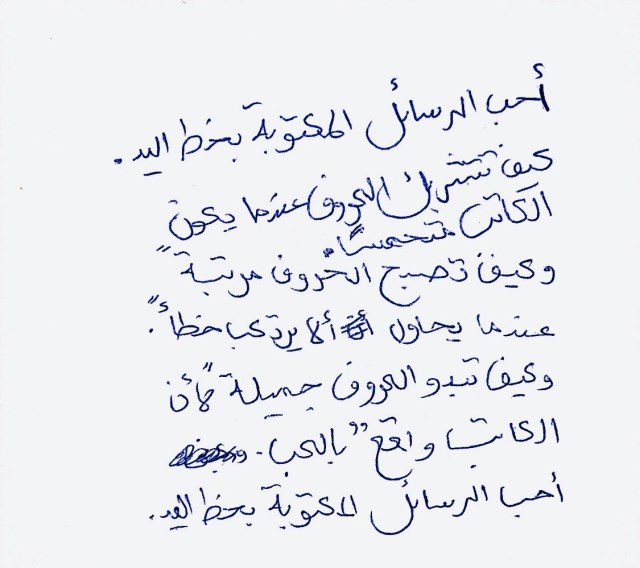 أحب الرسائل المكتوبة بخط اليد.
كيف تتشربك الحروف عندما يكون
الكاتب متحمسًا.
وكيف تصبح الحروف مرتبة"
عندما يحاول ألا يرتكب خطأ".
وكيف تبدو الحروف جميلة" لأن
الكاتب واقع" بالحب.
أحب الرسائل المكتوبة بخط اليد.